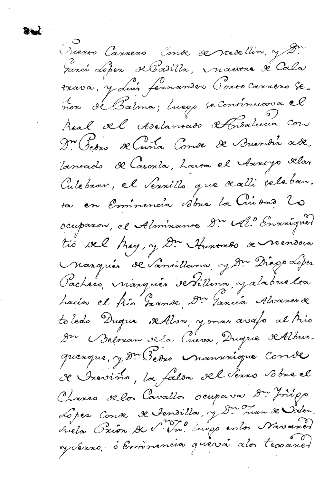 Puerto Carrero Conde de Medellin, y Dn.
Garcia Lopez de Padilla, Maestre de Cala
trava, y Luis Fernandez Puerto carrero Se-
ñor de Palma; luego se continuava el
Real del Adelantado de Andalucia con
Dn. Pedro de Conde de Buendia ade-
lantado de Cazorla, hasta el Arroyo de las
Culebras, el Serrillo que de alli
ta en eminencia sobre la Ciudad lo
ocuparon, el Almirante Dn. Alo. Enrriquez
tio del Rey, y Dn. Hurtado de Mendoza
Marques de Santillana, y Dn. Diego Lopez
Pacheco, Marques de Villena, y a la buelta
hacia el Rio Grande, Dn. Garcia Alvarez de
toledo Duque de Alva, y mas avajo al Rio
Dn. Beltran de la Cueva, Duque de Albur-
querque, y Dn. Pedro Manrrique Conde
de Treviño, la falda del Serro sobre el
Charco de los Cavallos ocupava Dn. Yñigo
Lopez Conde de Tendilla, y Dn. Juan de Valen-
zuela Prior de Sn. Jn. luego en los
y Serro, ó Eminencia que vá a los